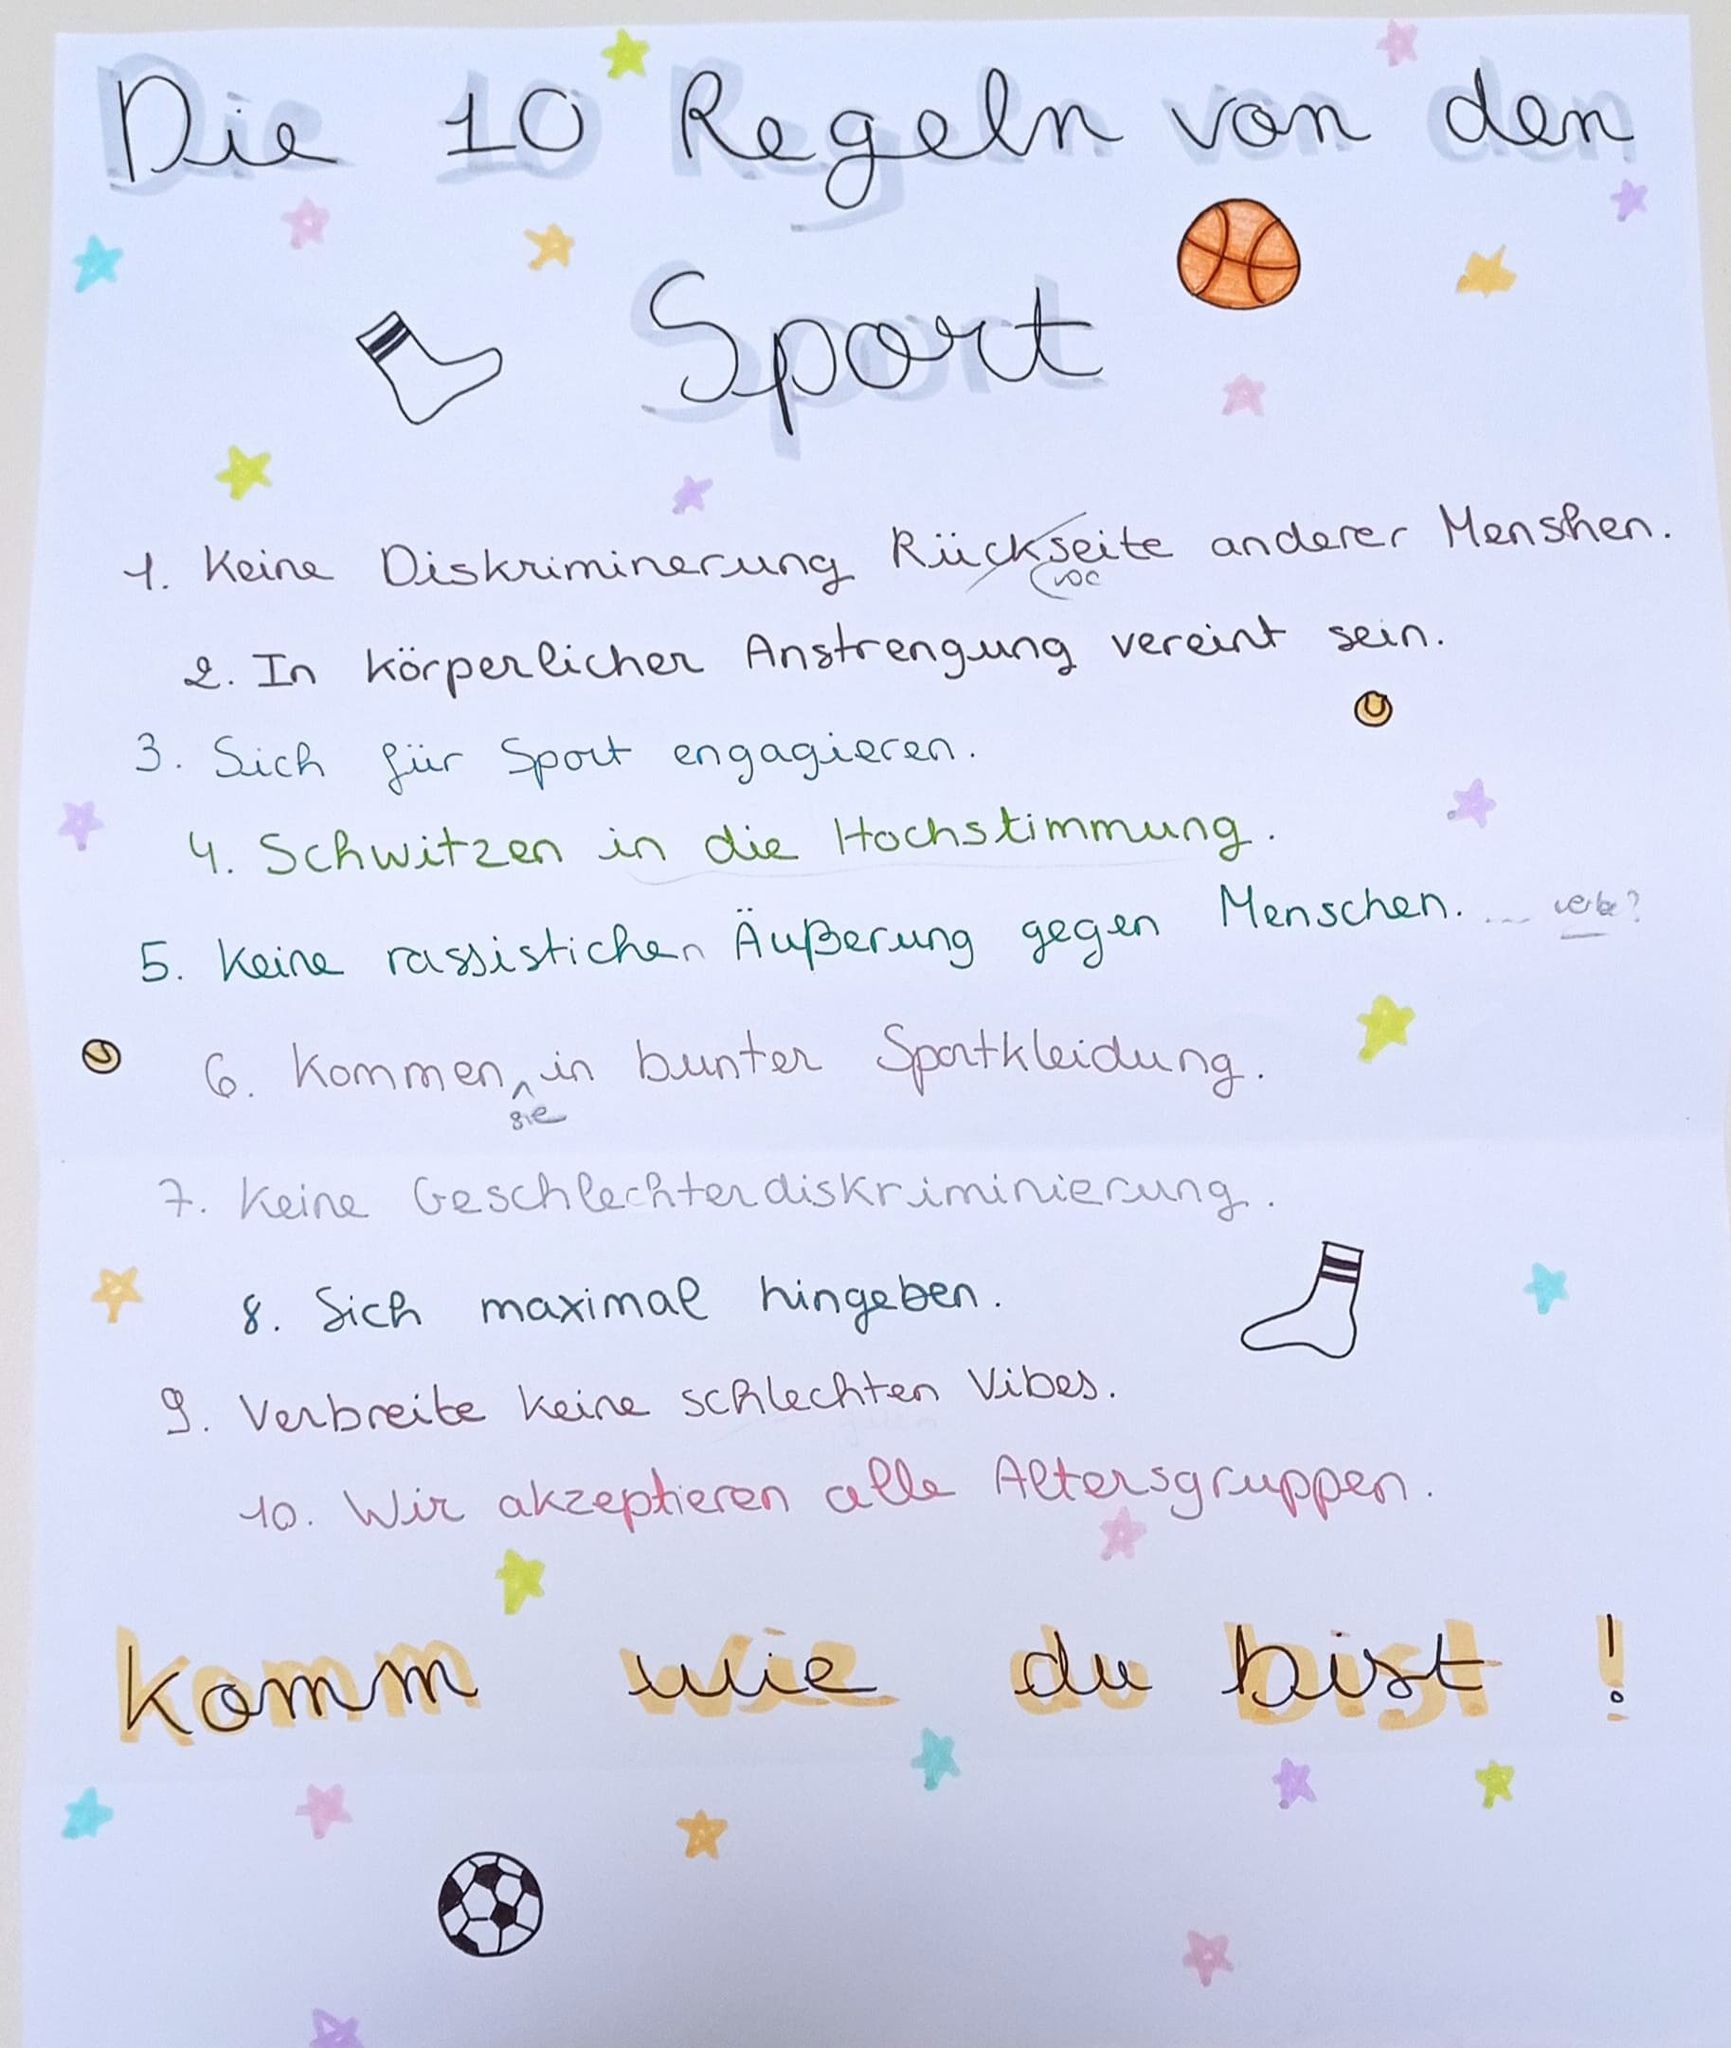 Die 10 Regeln von den
Sport
1. Keine Diskriminerung Rückseite anderer Menshen.
voc
2. In körperlicher Anstrengung vereint sein.
3. Sich für Sport engagieren.
4. Schwitzen in die Hochstimmung.
5. Keine rassistichen Äußerung gegen Menschen. ... verbe?
6. Kommen in bunter Sportkleidung.
sie
7. Keine Geschlechterdiskriminierung.
8. Sich maximal hingeben.
9. Verbreite keine schlechten Vibes.
10. Wir akzeptieren alle Altersgruppen.
Komm wie du bist !